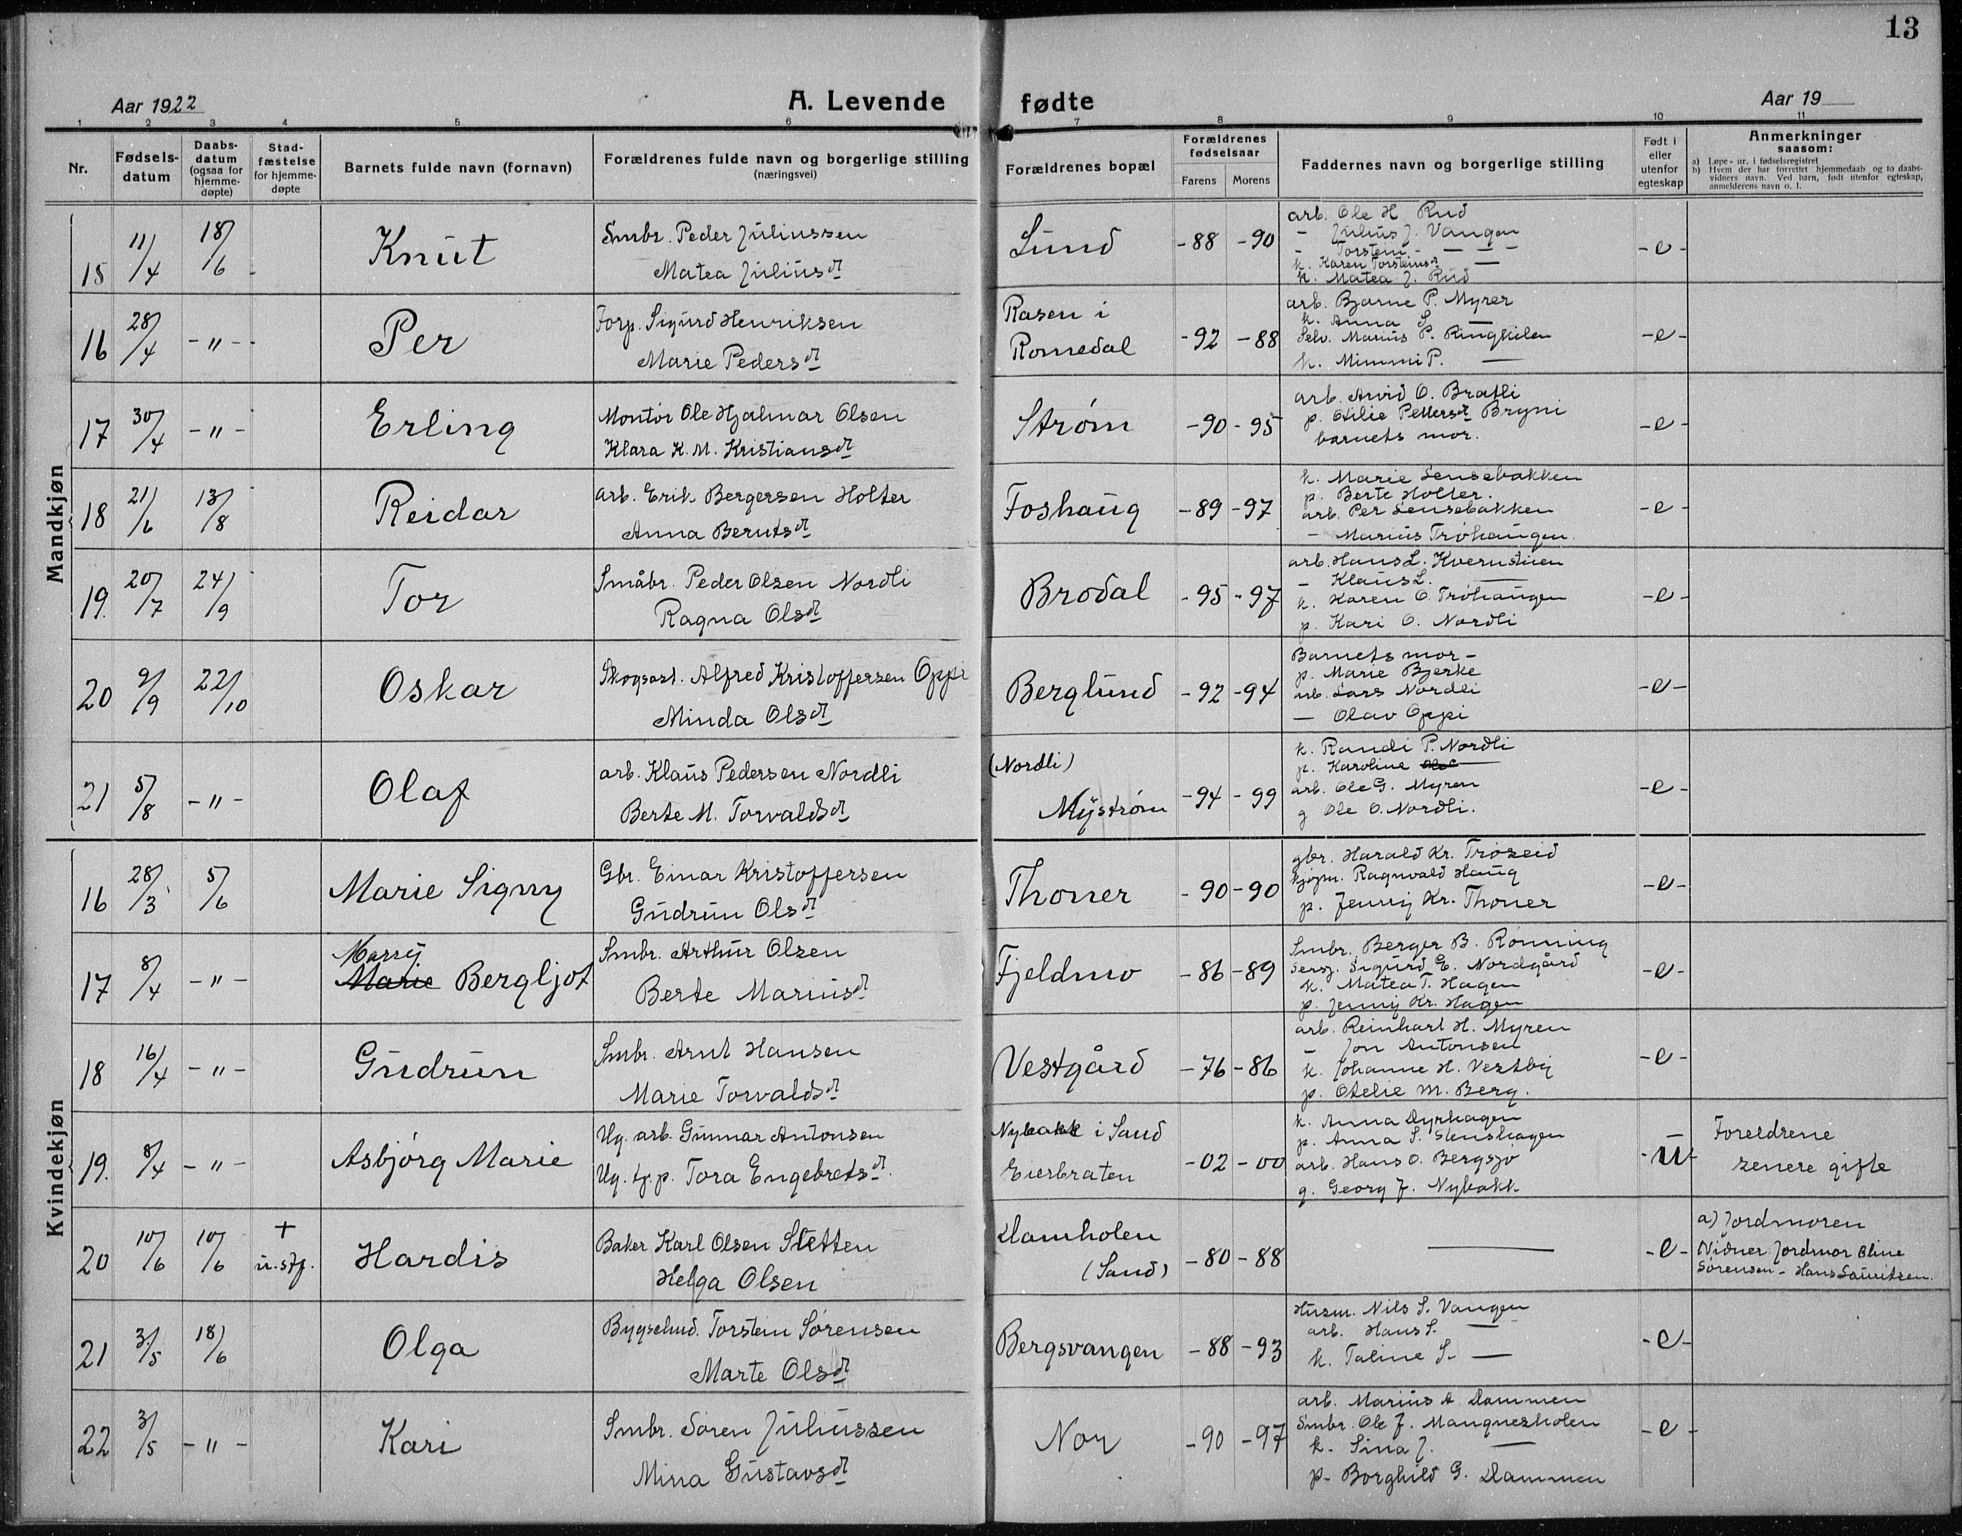 13
Aar 1922
A. Levende fødte
Aar 19
1 2 3 4 5 6 7 8 9 10 11
Nr.
Fødsels-
datum
Daabs-
datum
(ogsaa for
hjemme-
døpte)
Stad-
fæstelse
for hjemme-
døpte
Barnets fulde navn (fornavn)
Forældrenes fulde navn og borgerlige stilling
(næringsvei)
Forældrenes bopæl
Forældrenes
fødselsaar
Farens Morens
Faddernes navn og borgerlige stilling
Født i
eller
utenfor
egteskap
Anmerkninger
saasom:
a) Løpe-nr. i fødselsregistret
b) Hvem der har forrettet hjemmedaab og to daabs-
vidners navn. Ved barn, født utenfor egteskap,
anmelderens navn o. l.
Mandkjøn
15 11/4 18/6 Knut
Smbr. Peder Juliussen
Matea Juliusdt
Lund -88 -90
arb. Ole H. Rud
- Julius J. Vangen
- Torstein - — —
k. Karen Torsteinsdt —
k. Matea J. Rud
-e-
16 28/4 -"- Per
Forp. Sigurd Henriksen
Marie Pedersdt
Rasen i
Romedal -92 -88
arb. Bjarne P. Myrer
k. Anna S —
Selv. Marius P. Ringkilen
k. Mimmi P. —
-e-
17 30/4 -"- Erling
Montør Ole Hjalmar Olsen
Klara K. M. Kristiansdt
Strøm -90 -95
arb. Arvid O. Bratli
p. Otilie Pettersdt Bryni
barnets mor.
-e-
18 21/6 13/8 Reidar
arb. Erik Bergersen Holter
Anna Berntsdt
Foshaug -89 -97
k. Marie Lensebakken
p. Berte Holter.
arb. Per Lensebakken
- Marius Trøhaugen.
-e-
19. 20/7 24/9 Tor
Småbr. Peder Olsen Nordli
Ragna Olsdt
Brodal -95 -97
arb. Hans L. Kvernstuen
- Klaus L. —
k. Karen O. Trøhaugen
p. Kari O. Nordli
-e-
20 9/9 22/10 Oskar
Skogsast. Alfred Kristoffersen Oppi
Minda Olsdt
Berglund -92 -94
Barnets mor -
p. Marie Bjerke
arb. Lars Nordli
— Olav Oppi
-e-
21 5/8 -"- Olaf
arb. Klaus Pedersen Nordli
Berte M. Torvaldsdt
(Nordli)
Mystrøm -94 -99
k. Randi P. Nordli
p. Karoline —
arb. Ole G. Myren
g Ole O. Nordli.
-e-
Kvindekjøn
16 28/3 5/6 Marie Signy
Gbr. Einar Kristoffersen
Gudrun Olsdt
Thoner -90 -90
gbr. Harald Kr. Trøseid
kjøpm. Ragnvald Haug
p. Jenny Kr. Thoner
-e-
17 8/4 -"- Massy
Marie Bergljot
Smbr. Arthur Olsen
Berte Mariusdt
Fjeldmo -86 -89
Smbr. Berger B. Rønning
Sersj. Sigurd E. Nordgård
k. Matea T. Hagen
p. Jenny Kr. Hagen
-e-
18 16/4 -"- Gudrun
Smbr. Arnt Hansen
Marie Torvaldsdt
Vestgård -76 -86
arb. Reinhart H. Myren
- Jon Antonsen
k. Johanne H. Vestby
p. Otelie M. Berg.
-e-
19. 8/4 -"- Asbjørg Marie
Ug. arb. Gunnar Antonsen
Ug. tj. p. Tora Engebretsdt
Nybakk i Sand
Eierbraten -02 -00
k. Anna Dyrhagen
p. Anna S. Stenshagen
arb. Hans O. Bergsjø
g. Georg J. Nybakk
-u-
Foreldrene
senere gifte
20 10/6 10/6 +
u. stf. Hardis
Baker Karl Olsen Sletten
Helga Olsen
Damholen
(Sand) -80 -88
—
-e-
a) Jordmoren
Vidner Jordmor Oline
Sørensen - Hans Lauritsen.
21 3/5 18/6 Olga
Bygselmd. Torstein Sørensen
Marte Olsdt
Bergsvangen -88 -93
Husm. Nils S. Vangen
arb. Hans S. —
k. Taline S. —
-e-
22 3/5 -"- Kari
Smbr. Søren Juliussen
Mina Gustavsdt
Nor -90 -97
arb. Marius A Dammen
Smbr. Ole J. Mangnesholen
k. Sina J. —
p. Borghild G. Dammen
-e-